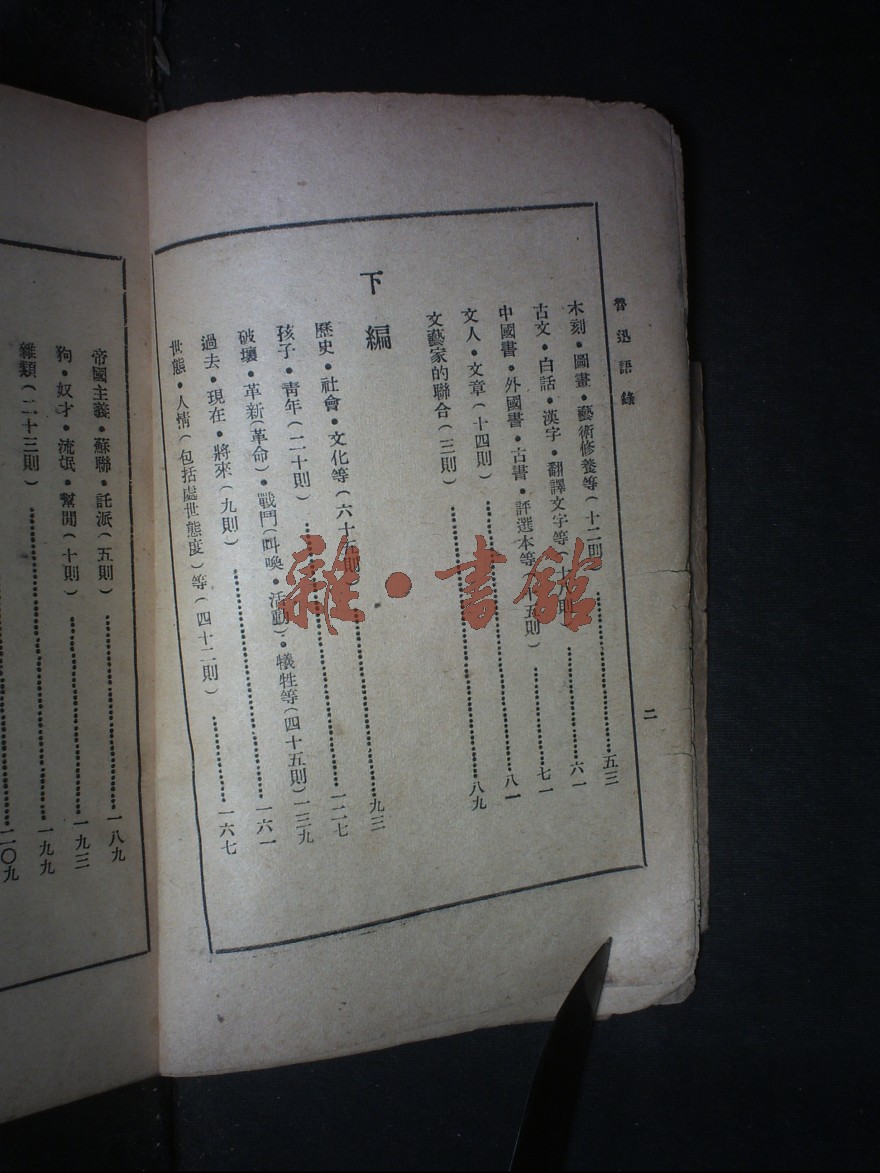 魯迅語錄
二
木刻•圖畫•藝術修養等(十二則)……五三
古文•白話•漢字•翻譯文字等(十八則)……六一
中國書•外國書•古書•評選本等(十五則)……七一
文人•文章(十四則)……八一
文藝家的聯合(三則)……八九
下編
歷史•社會•文化等(六十五則)……九三
孩子•青年(二十則)……一二七
破壞•革新(革命)•戰鬥(叫喚•活動)•犧牲等(四十五則)一三九
過去•現在•將來(九則)……一六一
世態•人情(包括處世態度)等(四十二則)……一六七
帝國主義•蘇聯•託派(五則)……一八九
狗•奴才•流氓•幫閒(十則)……一九三
雜類(二十三則)……一九九
……二〇九
雜•書館